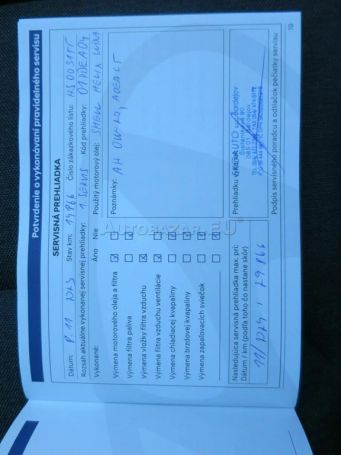 Potvrdenie o vykonávaní pravidelného servisu
SERVISNÁ PREHLIADKA
Dátum: 11 2023 Stav km: 14966 Číslo zákazkového listu:
Rozsah aktuálne vykonanej servisnej prehliadky: 1. SERVIS Kód prehliadky:
Vykonané: Áno Nie Použitý motorový olej: SHELL HELIX ULTRA
Výmena motorového oleja a filtra
Výmena filtra paliva
Výmena vložky filtra vzduchu
Výmena filtra vzduchu ventilácie
Výmena chladiacej kvapaliny
Výmena brzdovej kvapaliny
Výmena zapaľovacích sviečok
Poznámky:
AUTOBAZAR.EU
Nasledujúca servisná prehliadka max. pri:
Dátum / km (podľa toho čo nastane skôr)
11/2024 / 29966
Prehliadku vykonal:
Podpis servisného poradcu a odtlačok pečiatky servisu
19